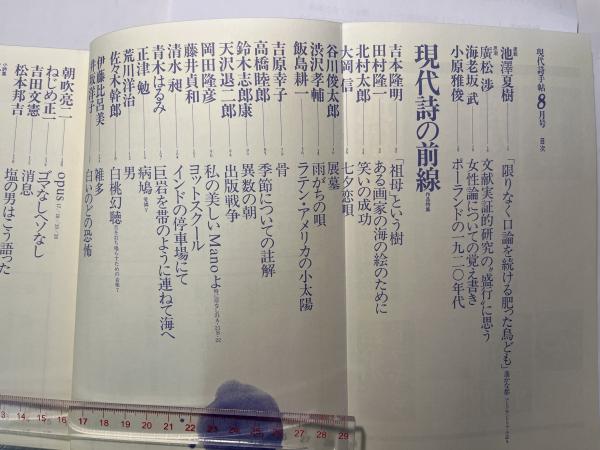 現代詩手帖 8月号 目次
連載
池澤夏樹 「限りなく口論を続ける肥った鳥ども」
廣松 渉 文献実証的研究の"盛行"に思う
海老坂 武 女性論についての覚え書き
小原雅俊 ポーランドの一九二〇年代
現代詩の前線 作品特集
吉本隆明 「祖母」という樹
田村隆一 ある画家の海の絵のために
北村太郎 笑いの成功
大岡 信 七夕恋唄
谷川俊太郎 展墓
渋沢孝輔 雨がちの唄
飯島耕一 ラテン・アメリカの小太陽
吉原幸子 骨
高橋睦郎 季節についての註解
鈴木志郎康 異数の朝
天沢退二郎 出版戦争
岡田隆彦 私の美しいManoよ
藤井貞和 ヨットスクール
清水 昶 インドの停車場にて
青木はるみ 巨岩を帯のように連ねて海へ
正津 勉 病鳩
荒川洋治 男
佐々木幹郎 白桃幻聴
伊藤比呂美 雑多
井坂洋子 白いのどの恐怖
朝吹亮二 opus
ねじめ正一 ゴマなしヘソなし
吉田文憲 消息
松本邦吉 塩の男はこう語った
13 14 15 16 17 18 19 20 21 22 23 24 25 26 27 28 29